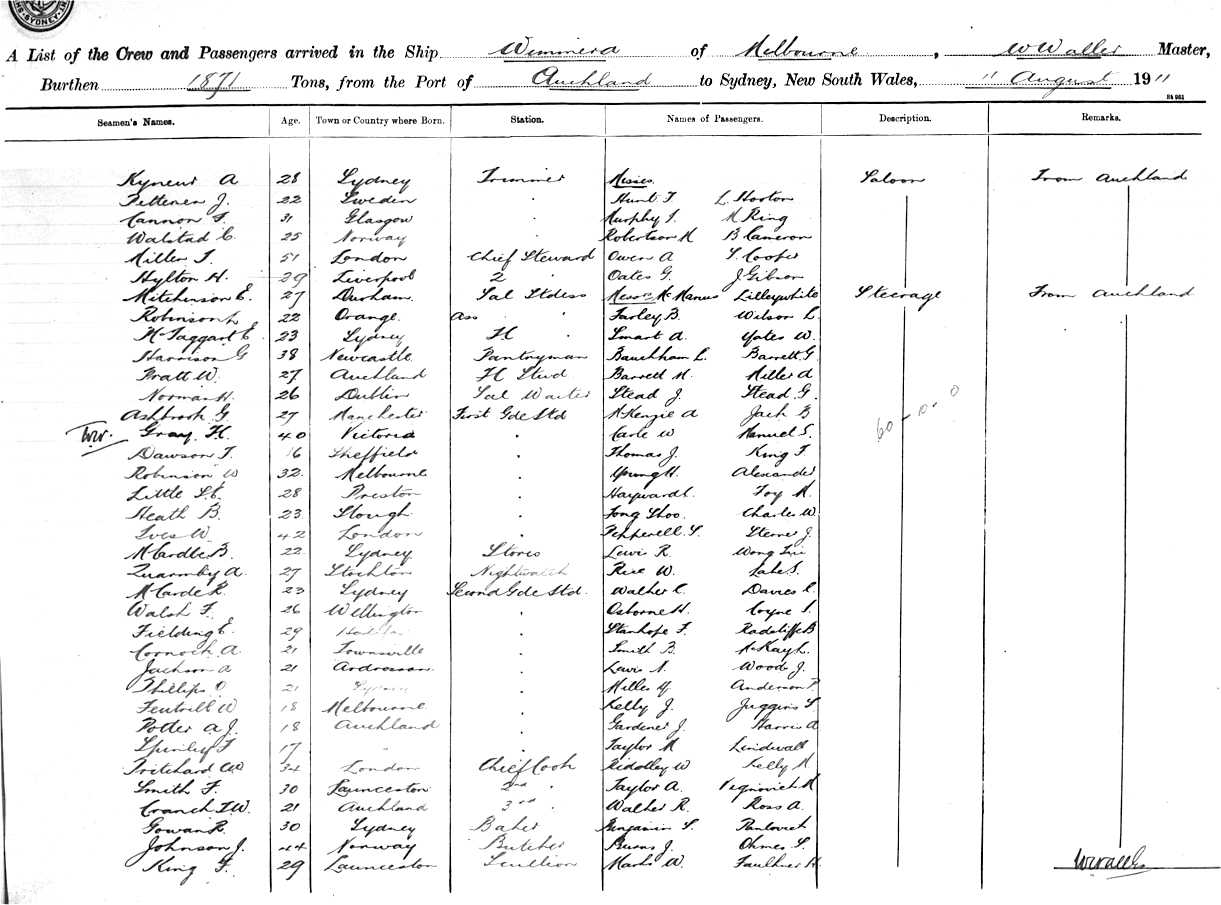 SYDNEY
A List of the Crew and Passengers arrived in the Ship Wimmera of Melbourne, W Waller Master,
Burthen 1871 Tons, from the Port of Auckland to Sydney, New South Wales, 11 August 1911
Seamen's Names. Age. Town or Country where Born. Station. Names of Passengers. Description. Remarks.
A 28 Sydney Trimmer Misses Saloon From Auckland
J. 22 Sweden " Hunt F L. Horton
Cannon F. 31 Glasgow " Murphy M King
Walstad C. 25 Norway " Robertson M B Cameron
Miller 51 London Chief Steward Owen A Cooper
Hylton H. 29 Liverpool 2 " Oates G. J Gibson
Mitchinson E. 27 Durham Sal Stdess Messrs McManus Lilleywhite Steerage From Auckland
Robinson 22 Orange Ass " Farley B. Wilson L.
McTaggart E 23 Sydney " Smart A. Yates W.
Harrison G 38 Newcastle Pantryman Bauckham L. Barrett G
Pratt W. 27 Auckland Barrett M. Miller A
Norman H. 26 Dublin Sal Waiter Stead J. Stead G.
Ashbrook G 27 Manchester First Gde Std McKenzie A Jack B
Gray H. 40 Victoria " Carle W Manuel S.
Dawson T. 16 Sheffield " Thomas J. King F
Robinson W 32 Melbourne " Young H. Alexander
Little 28 Preston " Hayward C. Foy M.
Heath B. 23 Slough " Charles W.
Ives W. 42 London " Pepperell S. J.
McCardle B. 22 Sydney Stores Lewis R. Wong
Quarmby A. 27 Stockton Nightwatch Rice W. Lake S.
McCarde R. 23 Sydney Second Gde Std. Walker C. Davies C.
Walsh F. 26 Wellington " Osborne H. Coyne
Fielding E. 29 " Stanhope F. Radcliffe B
Cornock A 21 Townsville " Smith B. McKay L.
Jackson A 21 Ardrossan " Lewis N. Wood J.
Phillips O 21 Sydney " Miller Anderson P.
W 18 Melbourne " Kelly J. Juggins
Potter A.J. 18 Auckland " Gardener J. Harris A
17 " " Taylor M Lindwall
Pritchard W 34 London Chief Cook Riddley W Kelly M
Smith F. 30 Launceston 2nd " Taylor A.
Cranch T.W. 21 Auckland 3rd " Walker R. Ross A.
Gowan R. 30 Sydney Baker Benjamin S. Pavlovich
Johnson J. 44 Norway Butcher Burns J. Ohmes
King F. 29 Launceston Scullion Marks W. Faulkner H.
60-0-0